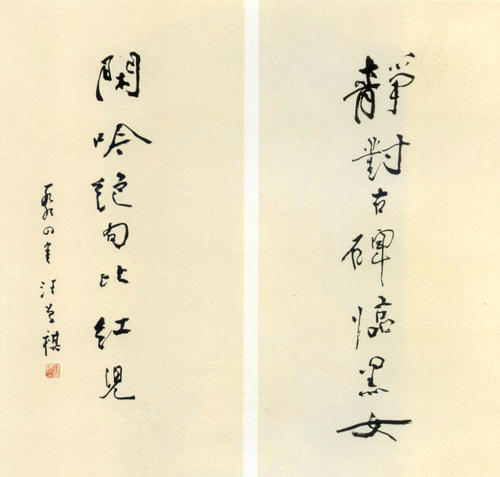 靜對古碑臨黑女
閑吟絶句比紅兒
四年汪曾祺